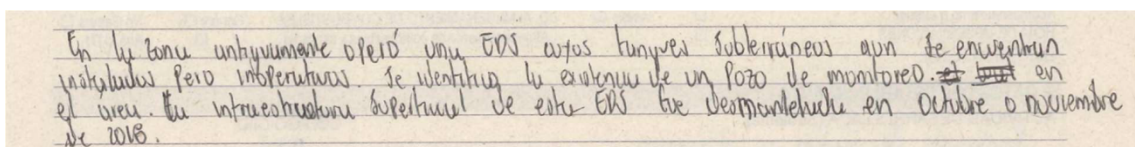 En la zona antiguamente operó una EDS cuyos tanques subterráneos aun se encuentran
instalados pero inoperativos. Se identifica la existencia de un pozo de monitoreo. en
el área. La infraestructura superficial de esta EDS fue desmantelada en octubre o noviembre
de 2018.